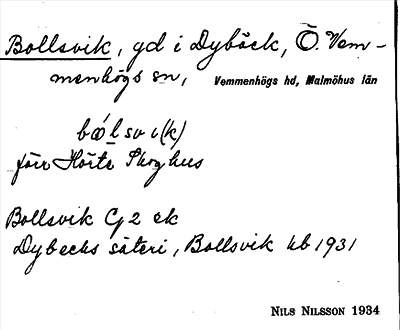 Bollsvik, gd i Dybäck, Ö. Vem-
menhögs sn, Vemmenhögs hd, Malmöhus län
bǿlsvı(k)
förr Hörte Skoghus
Bollsvik Cj 2 ek
Dybecks säteri, Bollsvik kb 1931
NILS NILSSON 1934